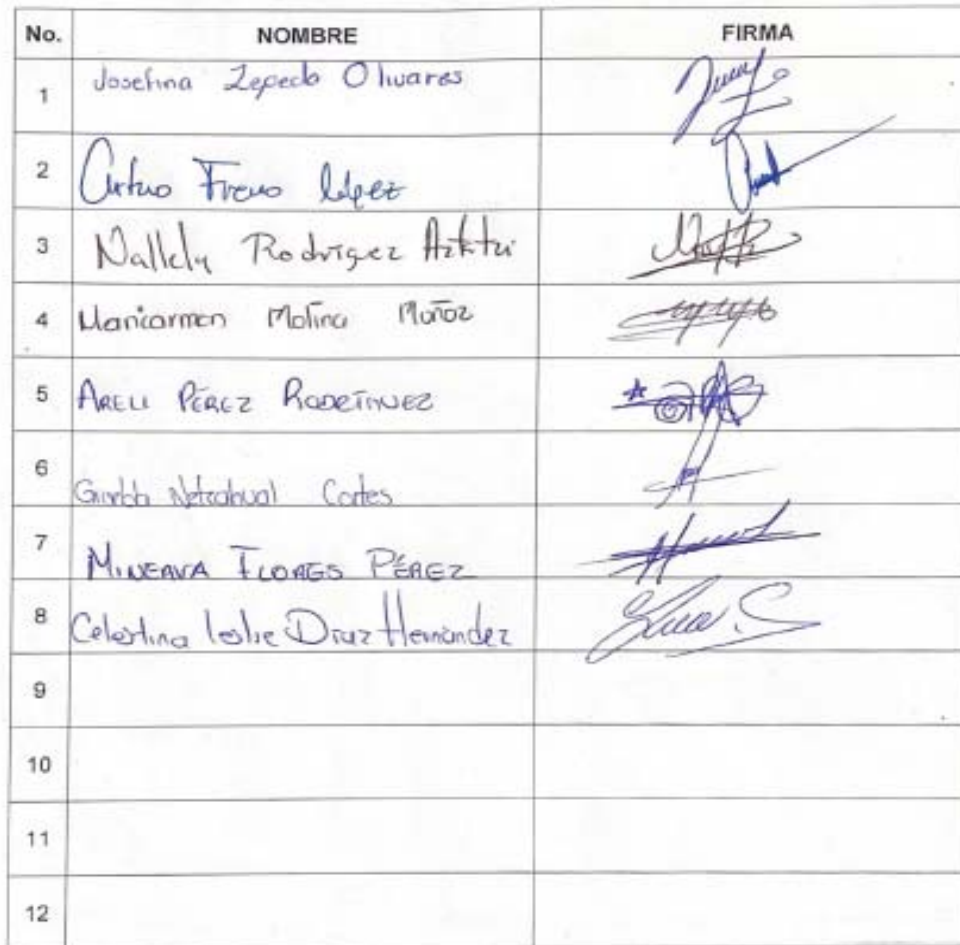 No. NOMBRE FIRMA
1 Josefina Zepeda Olivares
2 Arturo López
3 Nallely Rodrígez
4 Maricarmen Molina Muñoz
5 ARELI PÉREZ
6 Cortes
7 MINERVA FLORES PÉREZ
8 Celestina leslie Diaz Hernández
9
10
11
12